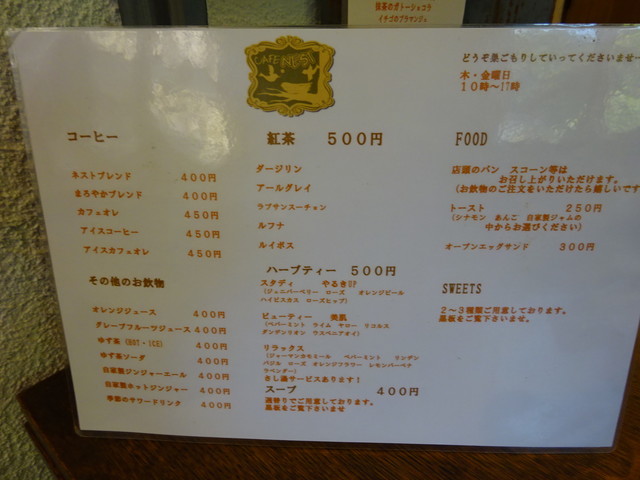 抹茶のガトーショコラ
イチゴのブラマンジェ
CAFE NEST
どうぞ巣ごもりしていってくださいませ
木・金曜日
10時〜17時
コーヒー
ネストブレンド 400円
まろやかブレンド 400円
カフェオレ 450円
アイスコーヒー 450円
アイスカフェオレ 450円
その他のお飲物
オレンジジュース 400円
グレープフルーツジュース 400円
ゆず茶 (HOT・ICE) 400円
ゆず茶ソーダ 400円
自家製ジンジャーエール 400円
自家製ホットジンジャー 400円
季節のサワードリンク 400円
紅茶 500円
ダージリン
アールグレイ
ラプサンスーチャン
ルフナ
ルイボス
ハーブティー 500円
スタディ やるきUP
(ジュニパーベリー ローズ オレンジピール
ハイビスカス ローズヒップ)
ビューティー 美肌
(ペパーミント ライム ヤロー リコルス
ダンデリオン ウスベニアオイ)
リラックス
(ジャーマンカモミール ペパーミント リンデン
バジル ローズ オレンジフラワー レモンバーベナ
ラベンダー)
さし湯サービスあります！
スープ 400円
週替りでご用意しております。
黒板をご覧下さいませ
FOOD
店頭のパン スコーン等は
お召し上がりいただけます。
(お飲物のご注文をいただけたら嬉しいです
トースト 250円
(シナモン あんこ 自家製ジャムの
中からお選びください)
オープンエッグサンド 300円
SWEETS
2〜3種類ご用意しております。
黒板をご覧下さいませ。